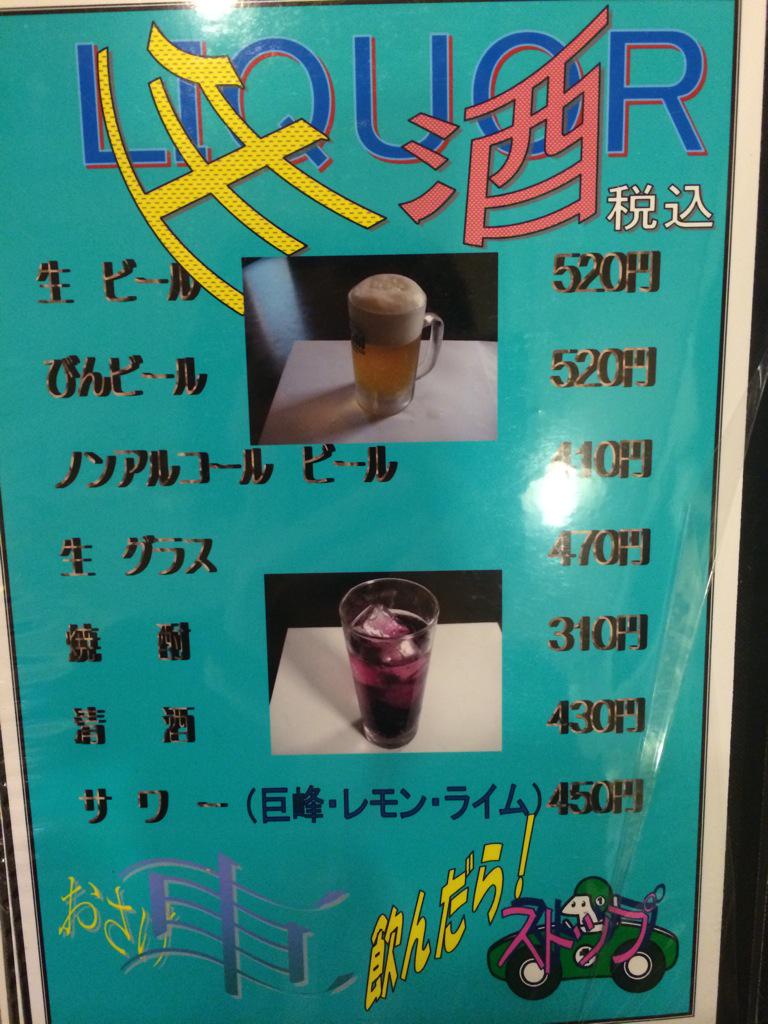 LIQUOR
酒
税込
生 ビール 520円
びんビール 520円
ノンアルコール ビール 410円
生 グラス 470円
焼 酎 310円
清 酒 430円
サワー(巨峰・レモン・ライム) 450円
おさけ 車 飲んだら! ストップ